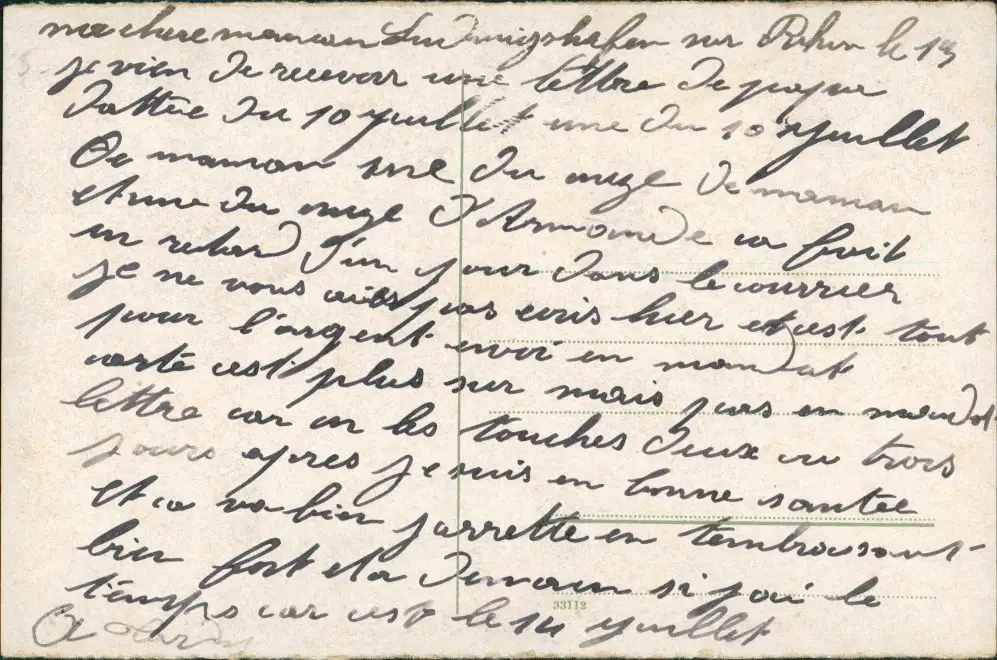 ma chere maman Ludwigshafen sur Rehin le 13
je vien de recevoir une lettre de papa
dattée du 10 juillet une du 10 juillet
De maman une du onze de maman
et une du onze d'Armande ca fait
un retard d'un jour dans le courrier
je ne vous ais pas ecris hier et cest tout
pour l'argent envoi en mandat
carte cest plus sur mais pas en mandat
lettre car on les touches deux ou trois
jours apres je suis en bonne santée
et ca va bien jarrette en tembrassant
bien fort et a demain si jai le
temps car cest le 14 juillet
33112